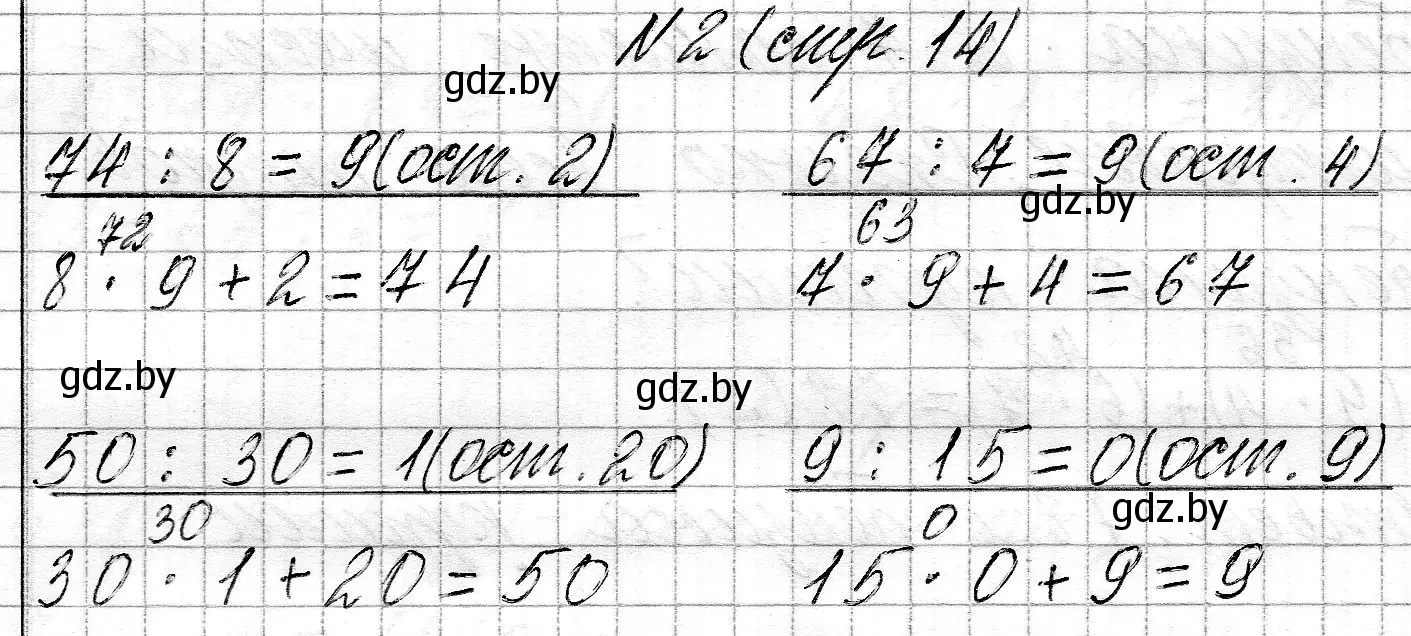 N 2 (стр. 14)
gdz.by
74 : 8 = 9(ост. 2)
67 : 7 = 9(ост. 4)
gdz.by
72
63
8 · 9 + 2 = 74
7 · 9 + 4 = 67
gdz.by
gdz.by
50 : 30 = 1(ост. 20)
9 : 15 = 0(ост. 9)
gdz.by
30
0
30 · 1 + 20 = 50
15 · 0 + 9 = 9